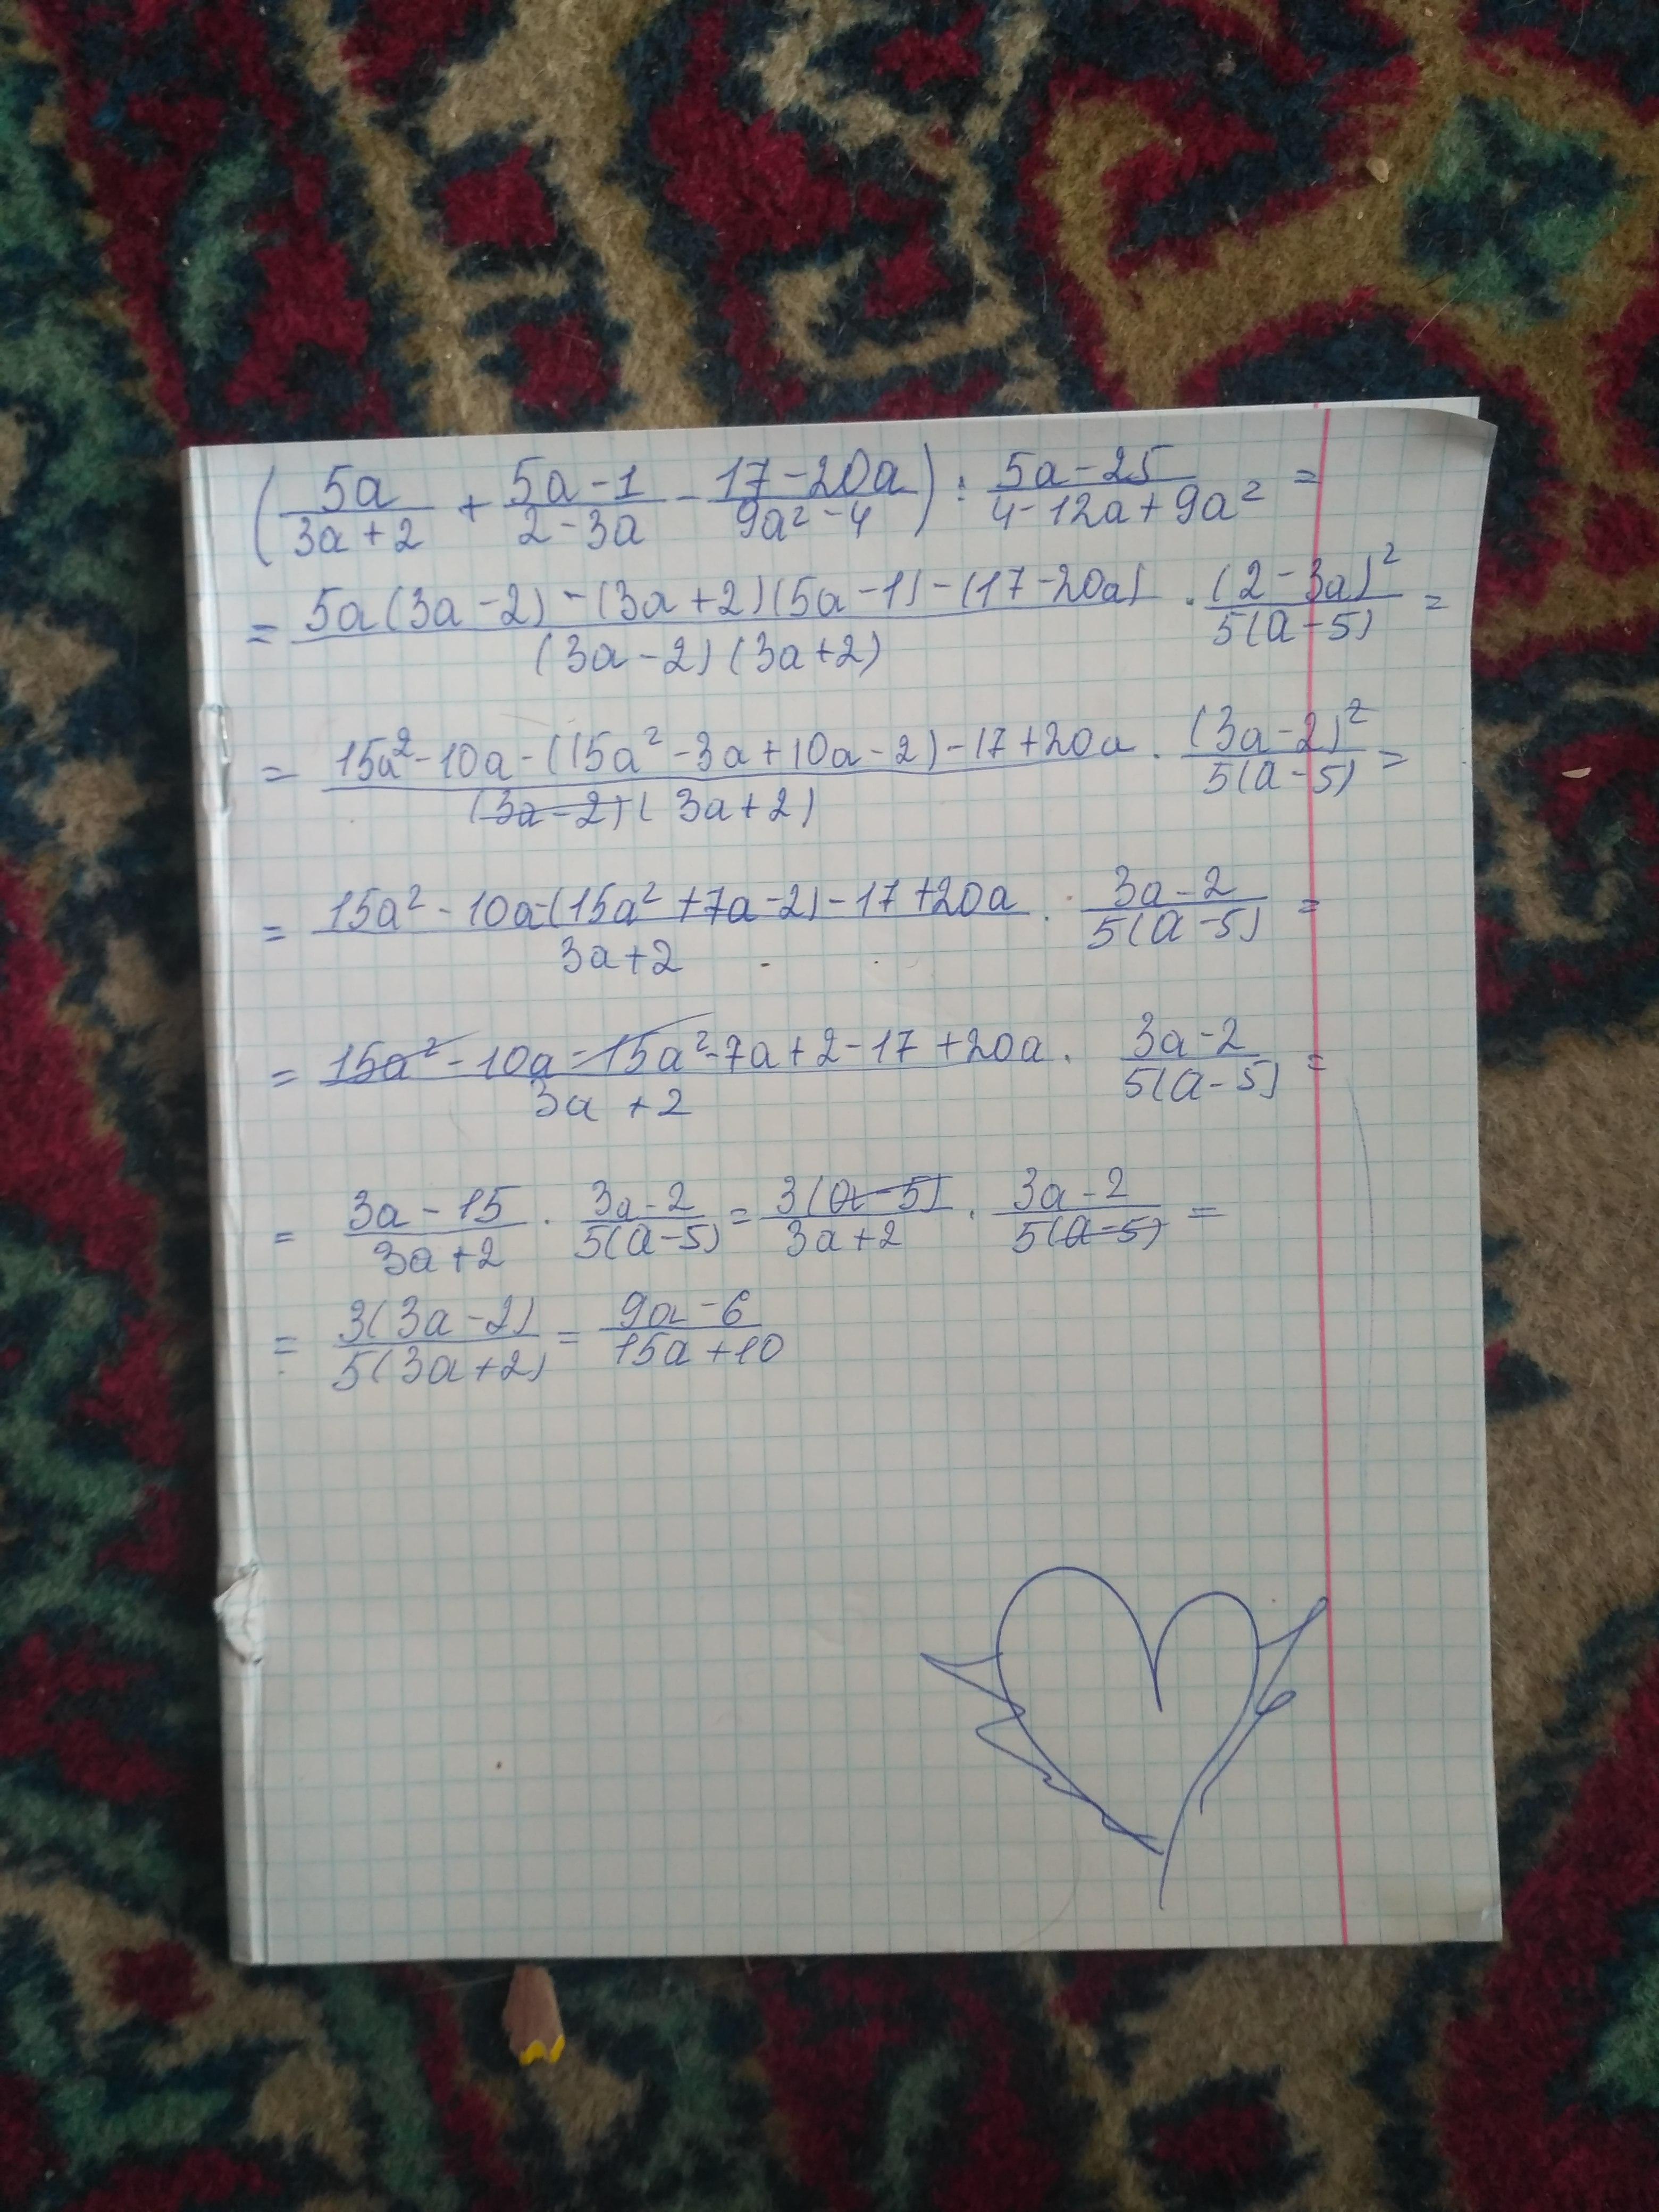 (5a/(3a+2) + (5a-1)/(2-3a) - (17-20a)/(9a²-4)) : (5a-25)/(4-12a+9a²) =
= (5a(3a-2)-(3a+2)(5a-1)-(17-20a))/((3a-2)(3a+2)) · (2-3a)²/(5(a-5)) =
= (15a²-10a-(15a²-3a+10a-2)-17+20a)/((3a-2)(3a+2)) · (3a-2)²/(5(a-5)) =
= (15a²-10a-(15a²+7a-2)-17+20a)/(3a+2) · (3a-2)/(5(a-5)) =
= (15a²-10a-15a²-7a+2-17+20a)/(3a+2) · (3a-2)/(5(a-5)) =
= (3a-15)/(3a+2) · (3a-2)/(5(a-5)) = 3(a-5)/(3a+2) · (3a-2)/(5(a-5)) =
= 3(3a-2)/(5(3a+2)) = (9a-6)/(15a+10)